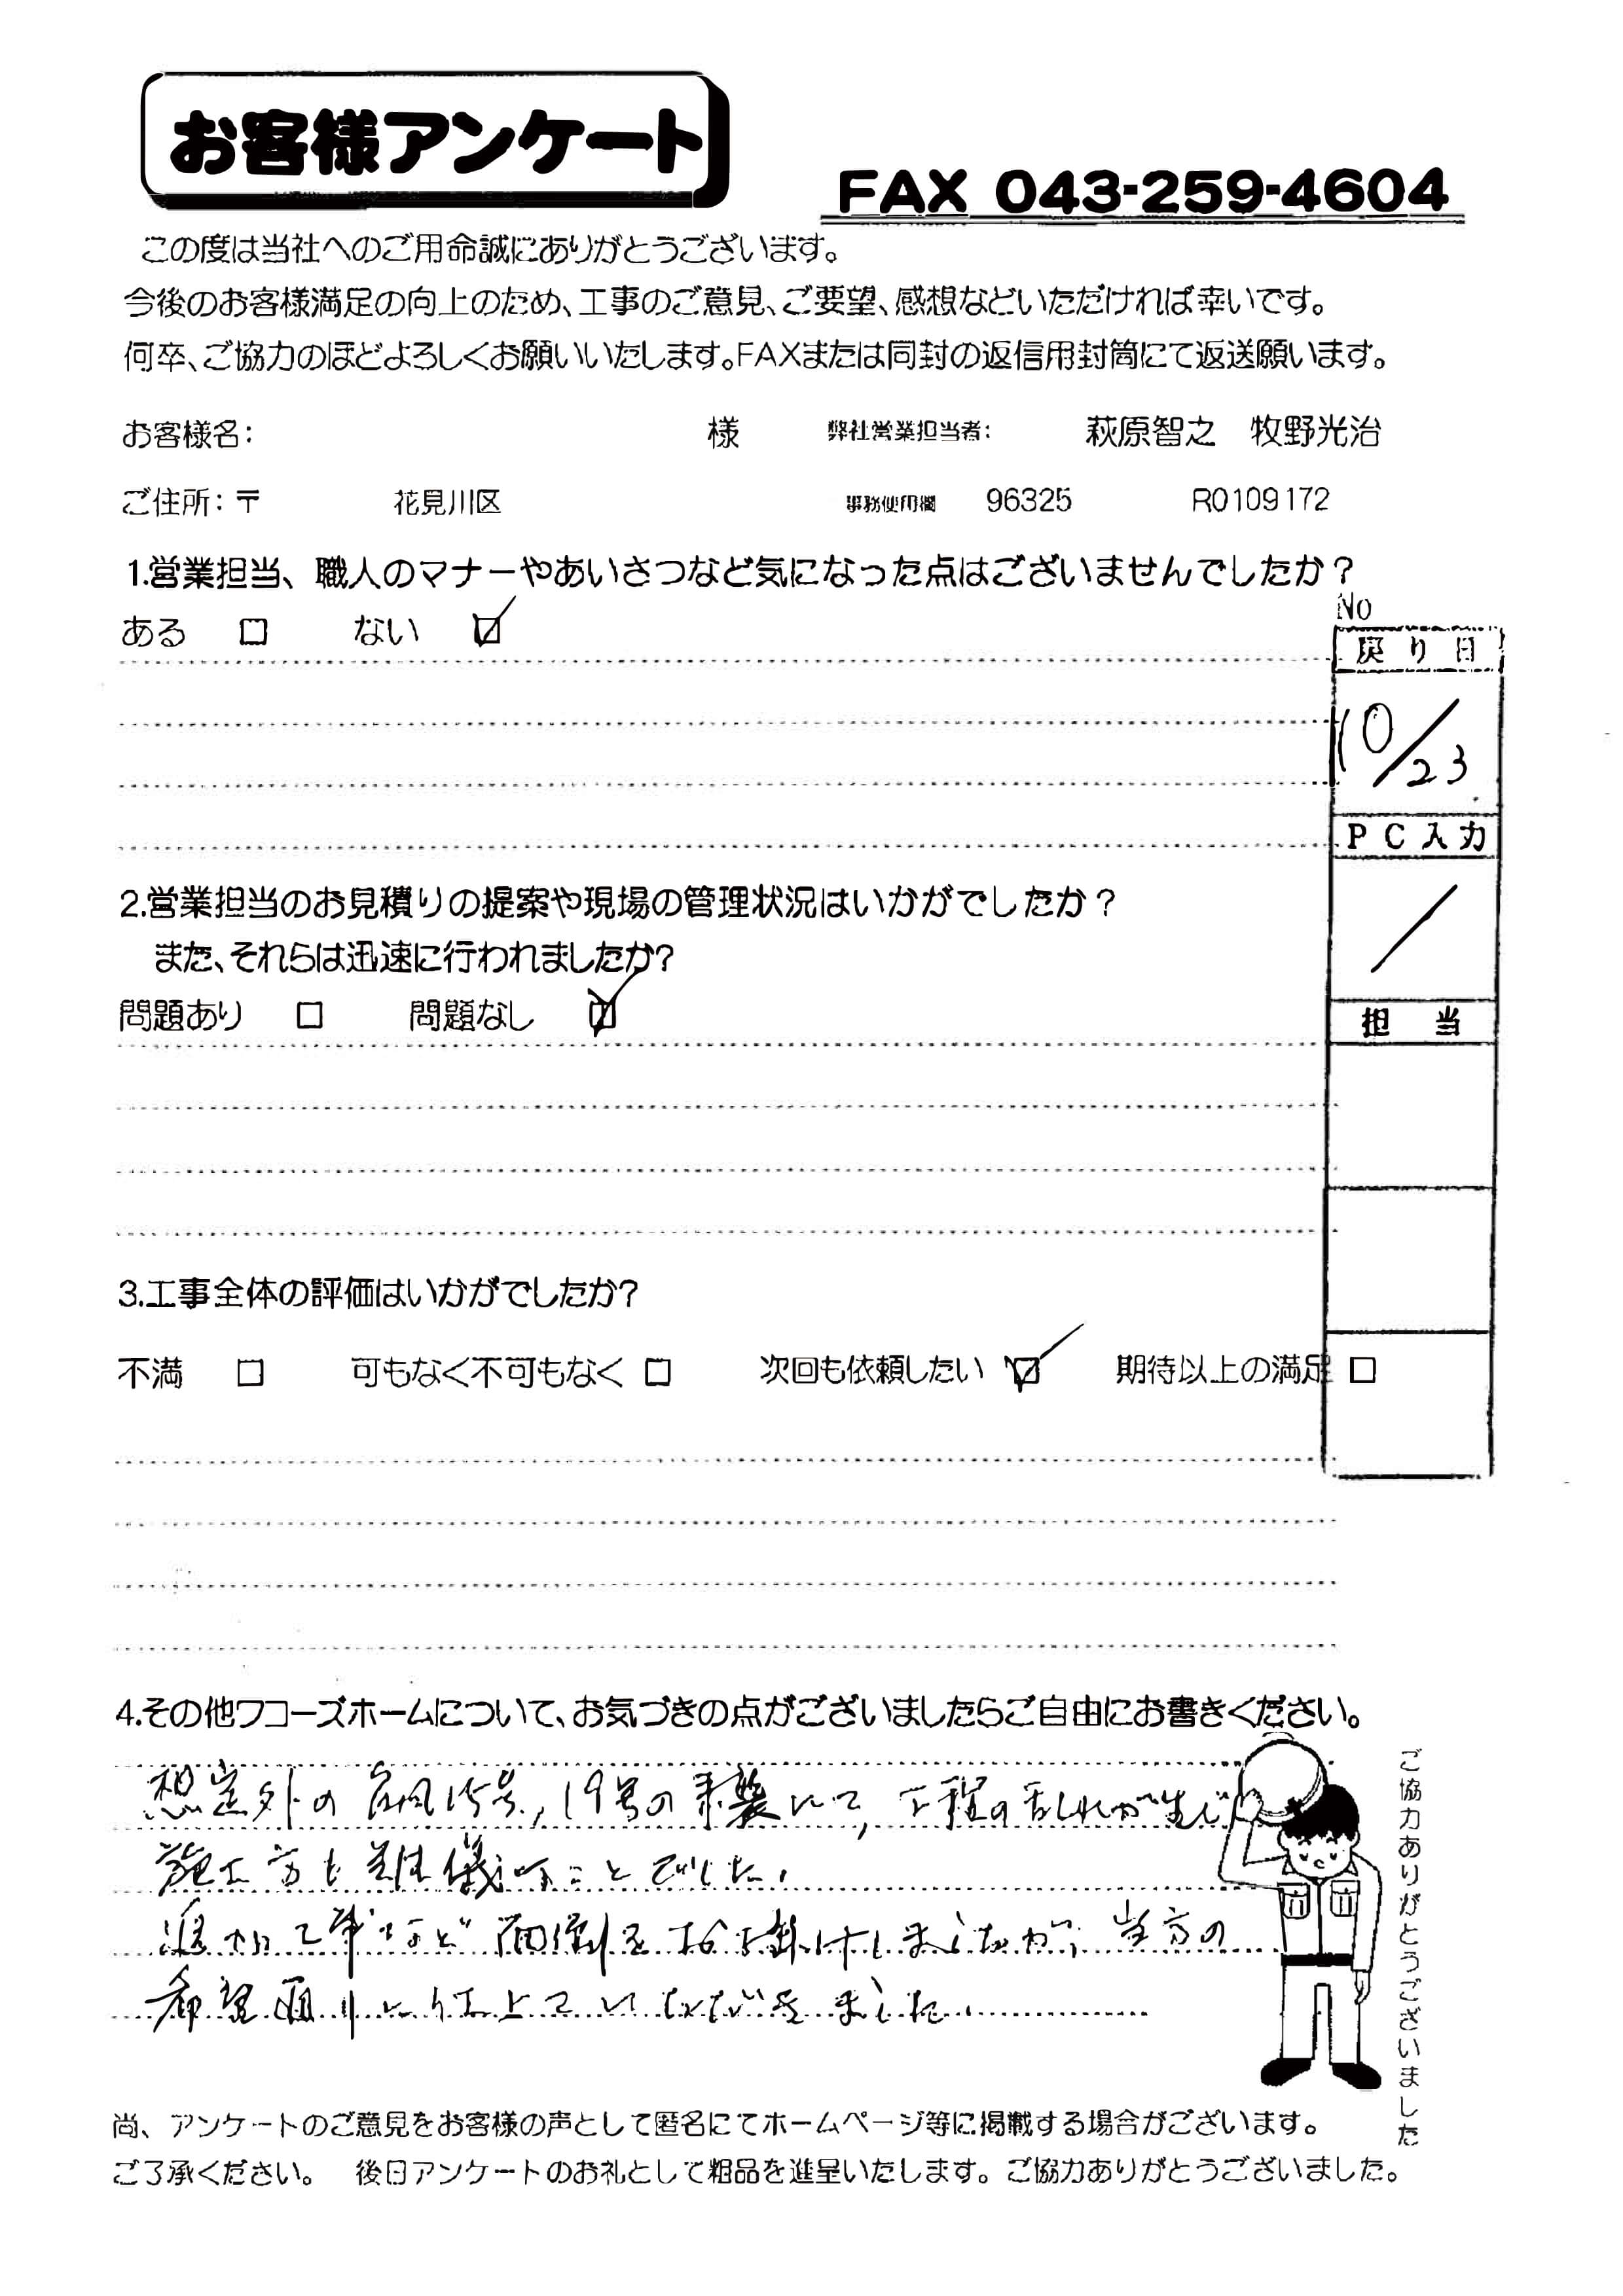 お客様アンケート
FAX 043-259-4604
この度は当社へのご用命誠にありがとうございます。
今後のお客様満足の向上のため、工事のご意見、ご要望、感想などいただければ幸いです。
何卒、ご協力のほどよろしくお願いいたします。FAXまたは同封の返信用封筒にて返送願います。
お客様名: 様 弊社営業担当者: 萩原智之 牧野光治
ご住所:〒 花見川区 事務使用欄 96325 R0109172
1.営業担当、職人のマナーやあいさつなど気になった点はございませんでしたか？
ある □ ない ☑
No
戻り日
10/23
PC入力
/
担当
2.営業担当のお見積りの提案や現場の管理状況はいかがでしたか？
また、それらは迅速に行われましたか?
問題あり □ 問題なし ☑
3.工事全体の評価はいかがでしたか?
不満 □ 可もなく不可もなく □ 次回も依頼したい ☑ 期待以上の満足 □
4.その他ワコーズホームについて、お気づきの点がございましたらご自由にお書きください。
想定外の台風15号,19号の来襲にて,工程の乱れが生じ
施工方も難儀なことでした。
工事など面倒をお掛けしましたが、当方の
希望通りに仕上ていただきました。
ご協力ありがとうございました
尚、アンケートのご意見をお客様の声として匿名にてホームページ等に掲載する場合がございます。
ご了承ください。 後日アンケートのお礼として粗品を進呈いたします。ご協力ありがとうございました。